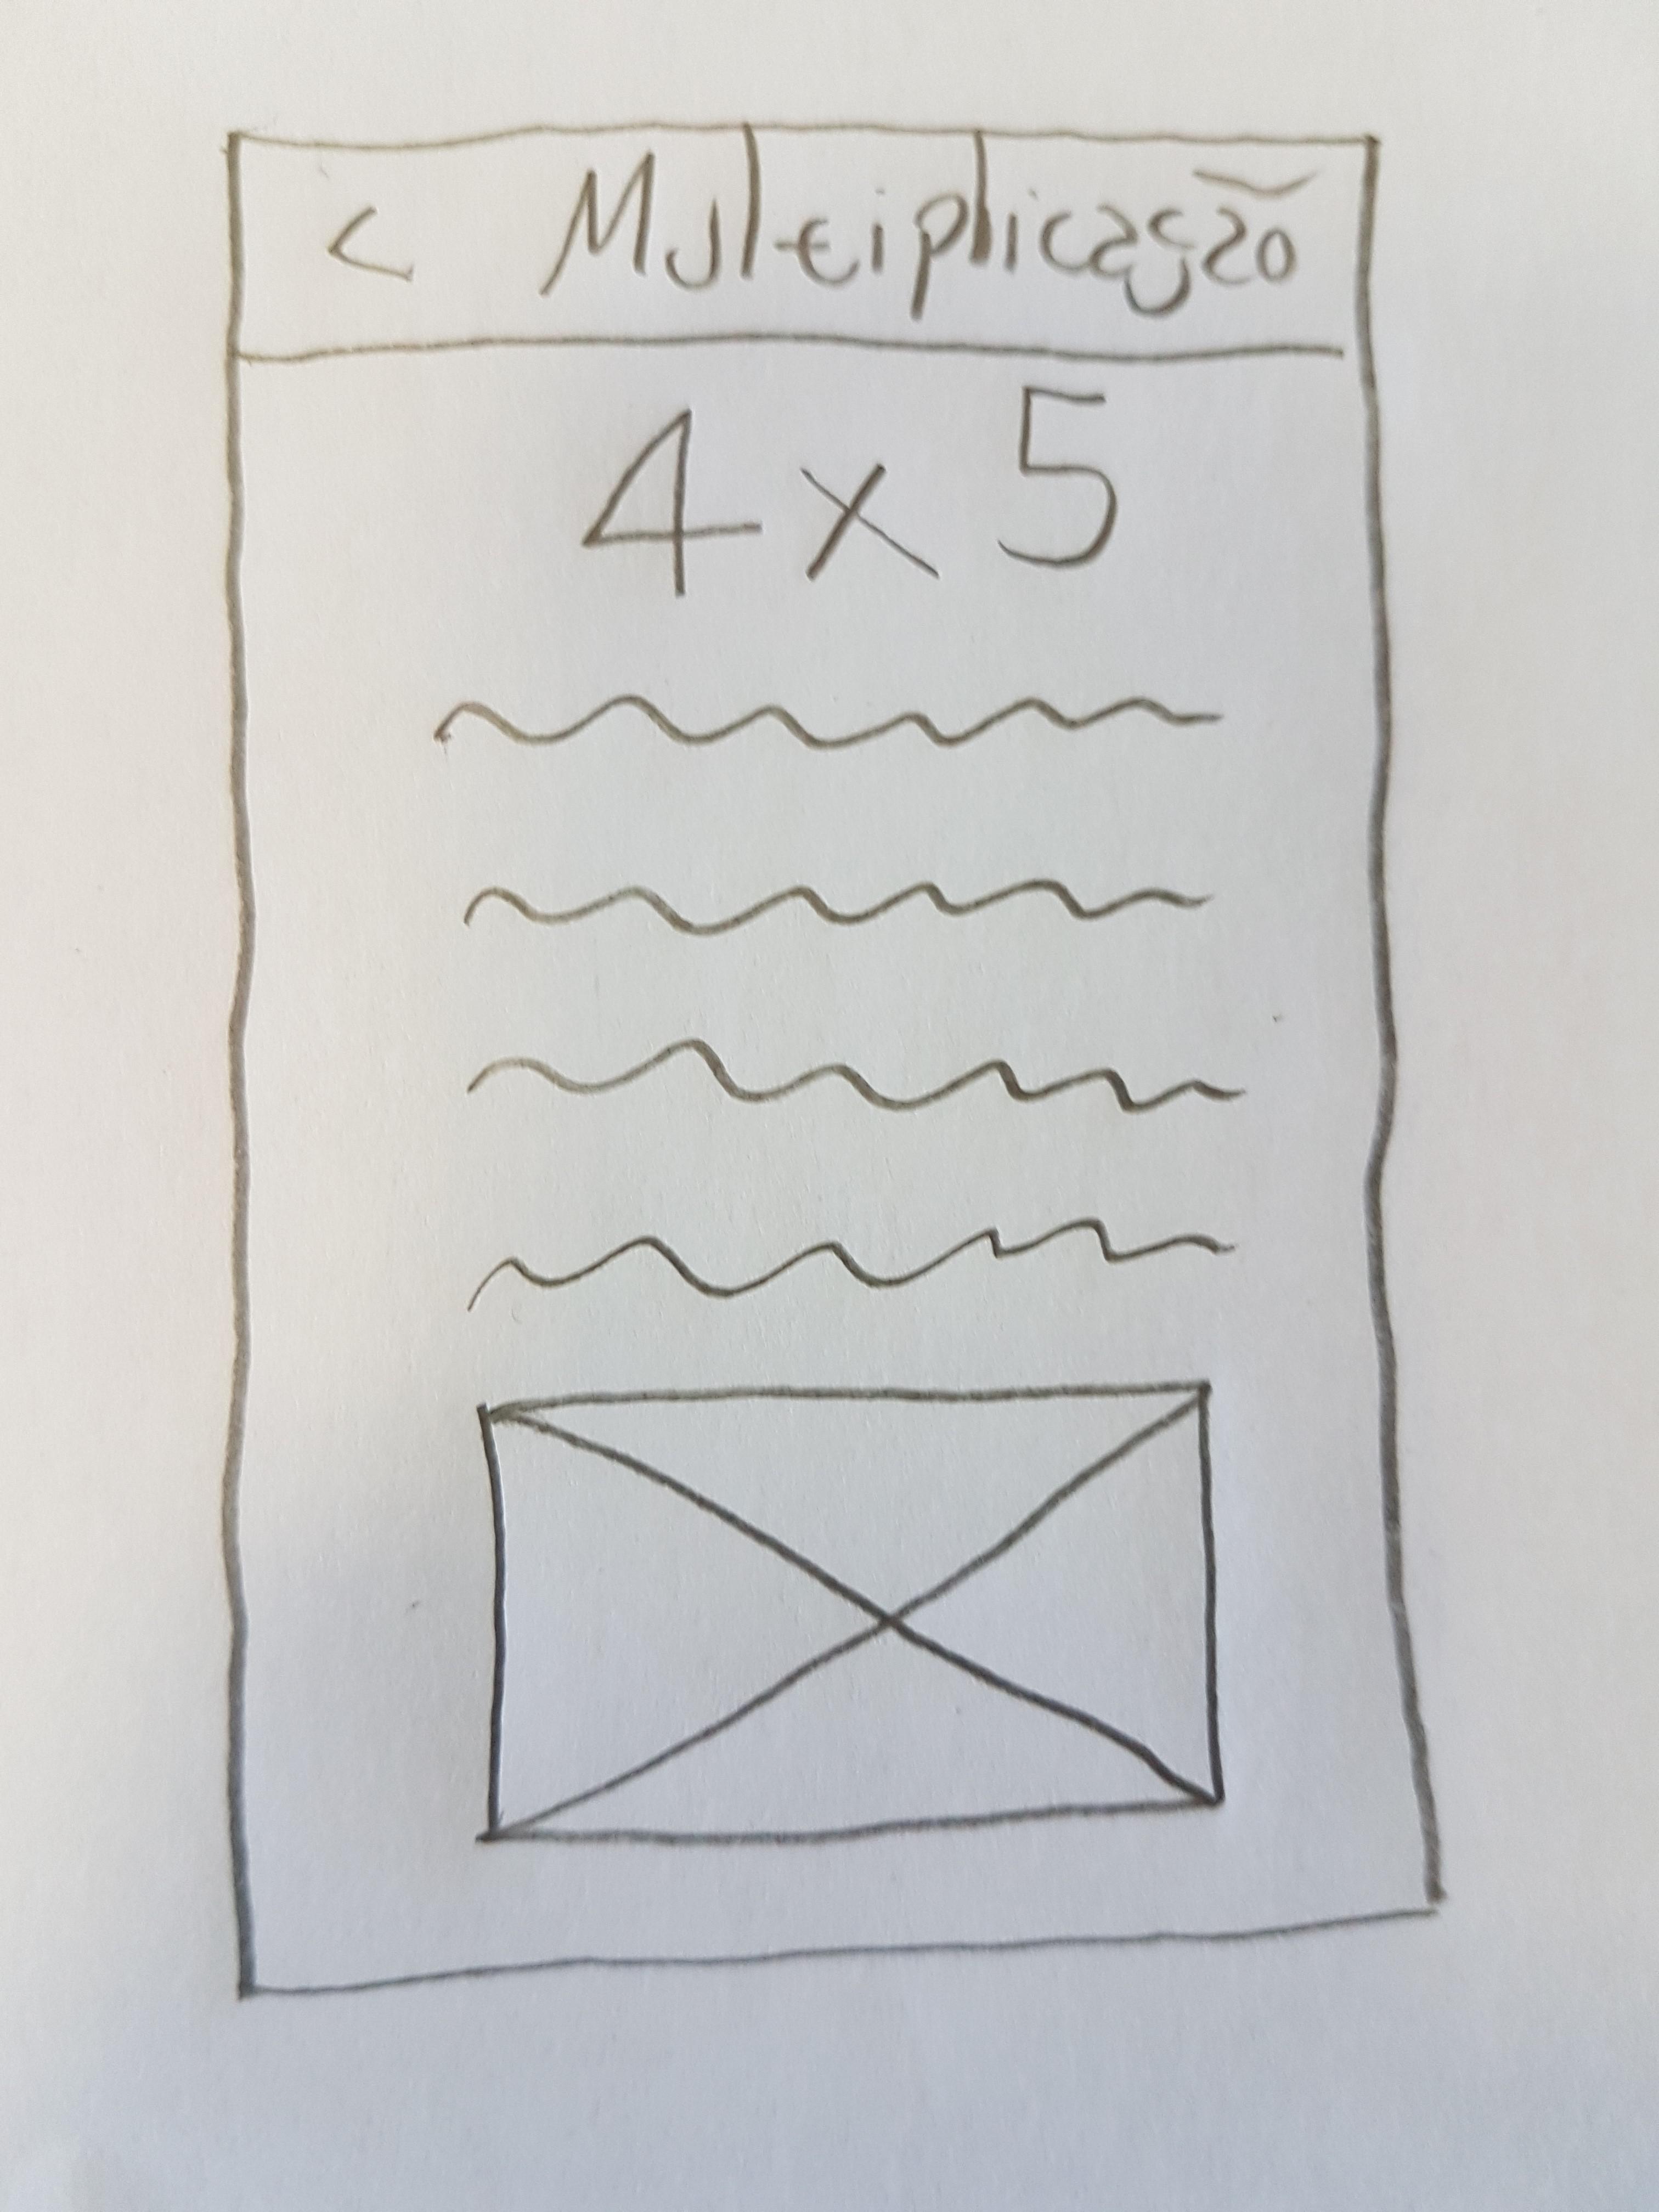 < Multiplicação
4 x 5